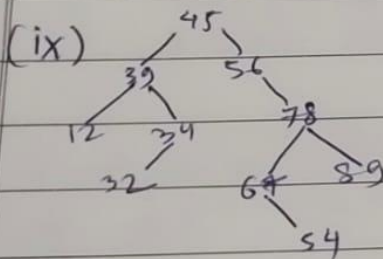 (ix) 45
39 56
12 34 78
32 67 89
54